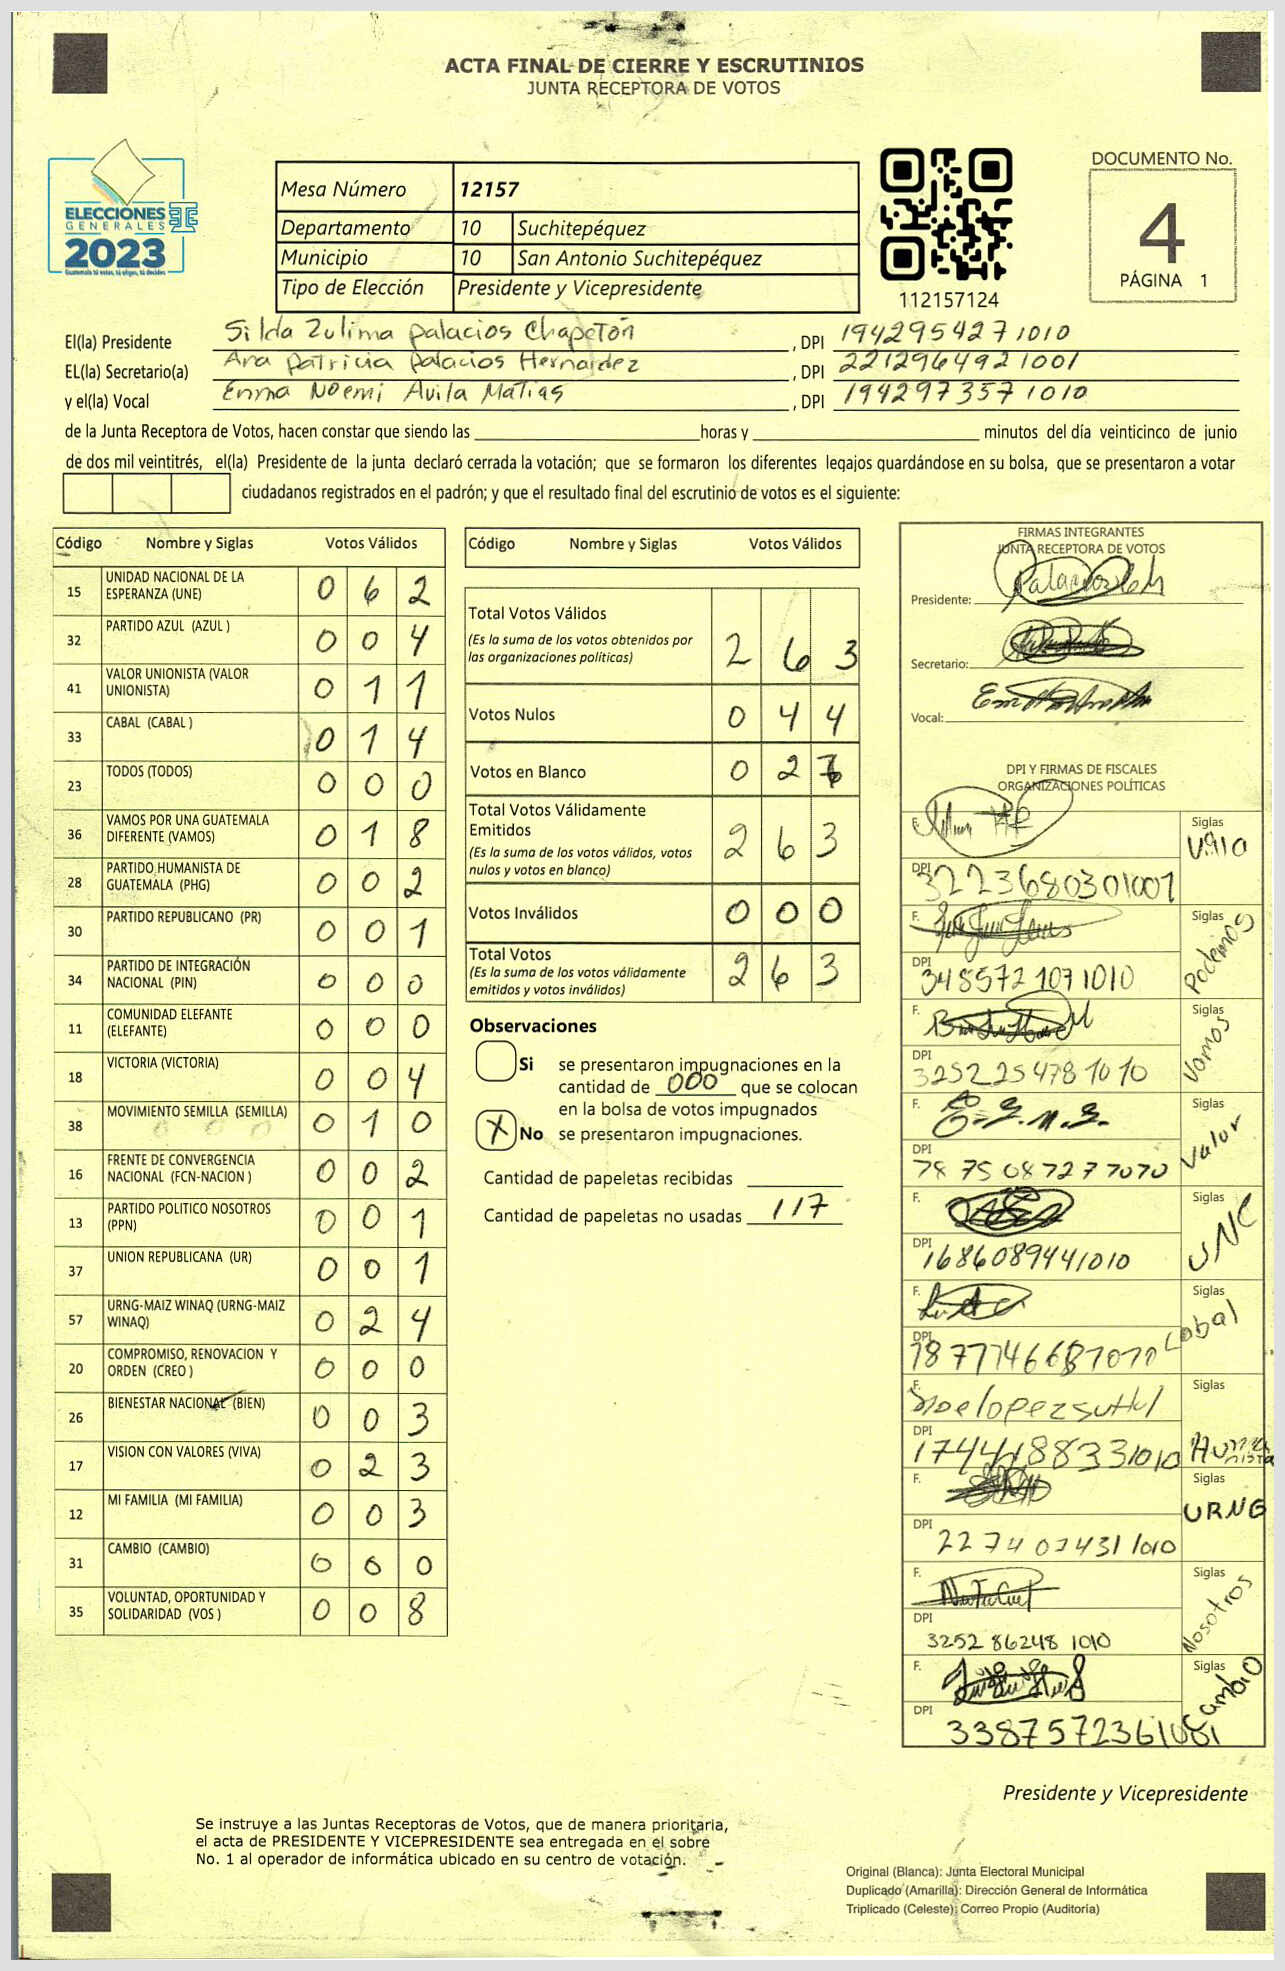 ACTA FINAL DE CIERRE Y ESCRUTINIOS
JUNTA RECEPTORA DE VOTOS
ELECCIONES
GENERALES
2023
Guatemala tú votas, tú eliges, tú decides
Mesa Número 12157
Departamento 10 Suchitepéquez
Municipio 10 San Antonio Suchitepéquez
Tipo de Elección Presidente y Vicepresidente
112157124
DOCUMENTO No.
4
PÁGINA 1
El(la) Presidente Silda Zulima Palacios Chapetón , DPI 1942954271010
EL(la) Secretario(a) Ana Patricia Palacios Hernandez , DPI 2212964921001
y el(la) Vocal Emma Noemi Avila Matias , DPI 1942973571010
de la Junta Receptora de Votos, hacen constar que siendo las horas y minutos del día veinticinco de junio
de dos mil veintitrés, el(la) Presidente de la junta declaró cerrada la votación; que se formaron los diferentes legajos guardándose en su bolsa, que se presentaron a votar
ciudadanos registrados en el padrón; y que el resultado final del escrutinio de votos es el siguiente:
Código Nombre y Siglas Votos Válidos
15 UNIDAD NACIONAL DE LA ESPERANZA (UNE) 0 6 2
32 PARTIDO AZUL (AZUL ) 0 0 4
41 VALOR UNIONISTA (VALOR UNIONISTA) 0 1 1
33 CABAL (CABAL ) 0 1 4
23 TODOS (TODOS) 0 0 0
36 VAMOS POR UNA GUATEMALA DIFERENTE (VAMOS) 0 1 8
28 PARTIDO HUMANISTA DE GUATEMALA (PHG) 0 0 2
30 PARTIDO REPUBLICANO (PR) 0 0 1
34 PARTIDO DE INTEGRACIÓN NACIONAL (PIN) 0 0 0
11 COMUNIDAD ELEFANTE (ELEFANTE) 0 0 0
18 VICTORIA (VICTORIA) 0 0 4
38 MOVIMIENTO SEMILLA (SEMILLA) 0 1 0
16 FRENTE DE CONVERGENCIA NACIONAL (FCN-NACION ) 0 0 2
13 PARTIDO POLITICO NOSOTROS (PPN) 0 0 1
37 UNION REPUBLICANA (UR) 0 0 1
57 URNG-MAIZ WINAQ (URNG-MAIZ WINAQ) 0 2 4
20 COMPROMISO, RENOVACION Y ORDEN (CREO ) 0 0 0
26 BIENESTAR NACIONAL (BIEN) 0 0 3
17 VISION CON VALORES (VIVA) 0 2 3
12 MI FAMILIA (MI FAMILIA) 0 0 3
31 CAMBIO (CAMBIO) 0 0 0
35 VOLUNTAD, OPORTUNIDAD Y SOLIDARIDAD (VOS ) 0 0 8
Código Nombre y Siglas Votos Válidos
Total Votos Válidos 2 6 3
(Es la suma de los votos obtenidos por
las organizaciones políticas)
Votos Nulos 0 4 4
Votos en Blanco 0 2
Total Votos Válidamente
Emitidos 2 6 3
(Es la suma de los votos válidos, votos
nulos y votos en blanco)
Votos Inválidos 0 0 0
Total Votos 2 6 3
(Es la suma de los votos válidamente
emitidos y votos inválidos)
Observaciones
Si se presentaron impugnaciones en la
cantidad de 000 que se colocan
en la bolsa de votos impugnados
X No se presentaron impugnaciones.
Cantidad de papeletas recibidas
Cantidad de papeletas no usadas 117
FIRMAS INTEGRANTES
JUNTA RECEPTORA DE VOTOS
Presidente:
Secretario:
Vocal:
DPI Y FIRMAS DE FISCALES
ORGANIZACIONES POLÍTICAS
F. Siglas
DPI 3223680301001
F. Siglas Podemos
DPI 3485721071010
F. Siglas Vamos
DPI 3252254781010
F. Siglas Valor
DPI
F. Siglas UNE
DPI 1686089441010
F. Siglas Cabal
DPI
F. Siglas Humanista
DPI 1744188331010
F. Siglas URNG
DPI 2274074311010
F. Siglas Nosotros
DPI 3252862481010
F. Siglas Cambio
DPI
Presidente y Vicepresidente
Se instruye a las Juntas Receptoras de Votos, que de manera prioritaria,
el acta de PRESIDENTE Y VICEPRESIDENTE sea entregada en el sobre
No. 1 al operador de informática ubicado en su centro de votación.
Original (Blanca): Junta Electoral Municipal
Duplicado (Amarilla): Dirección General de Informática
Triplicado (Celeste): Correo Propio (Auditoría)